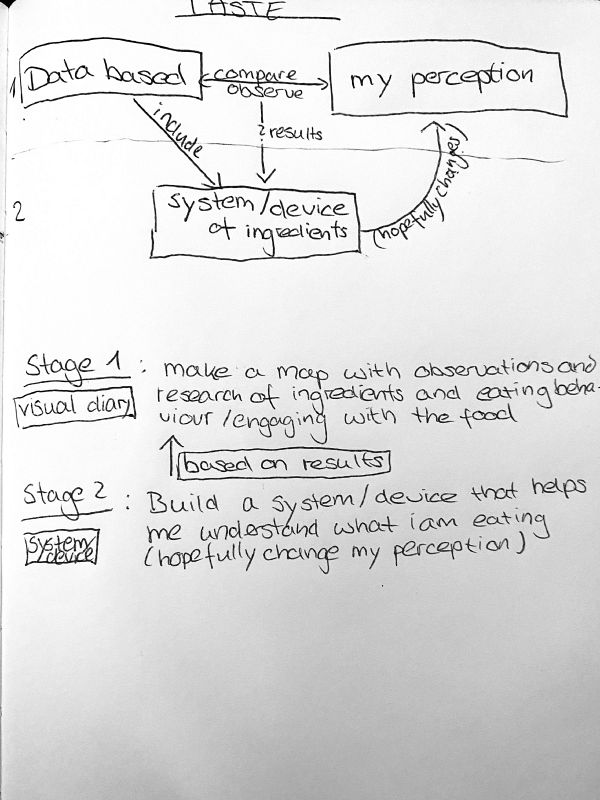 TASTE
1 Data based compare my perception
observe
include
? results
(hopefully changes)
2
system/device
of ingredients
Stage 1 : make a map with observations and
visual diary research of ingredients and eating beha-
viour/engaging with the food
based on results
Stage 2 : Build a system/device that helps
me understand what i am eating
system
/device (hopefully change my perception)